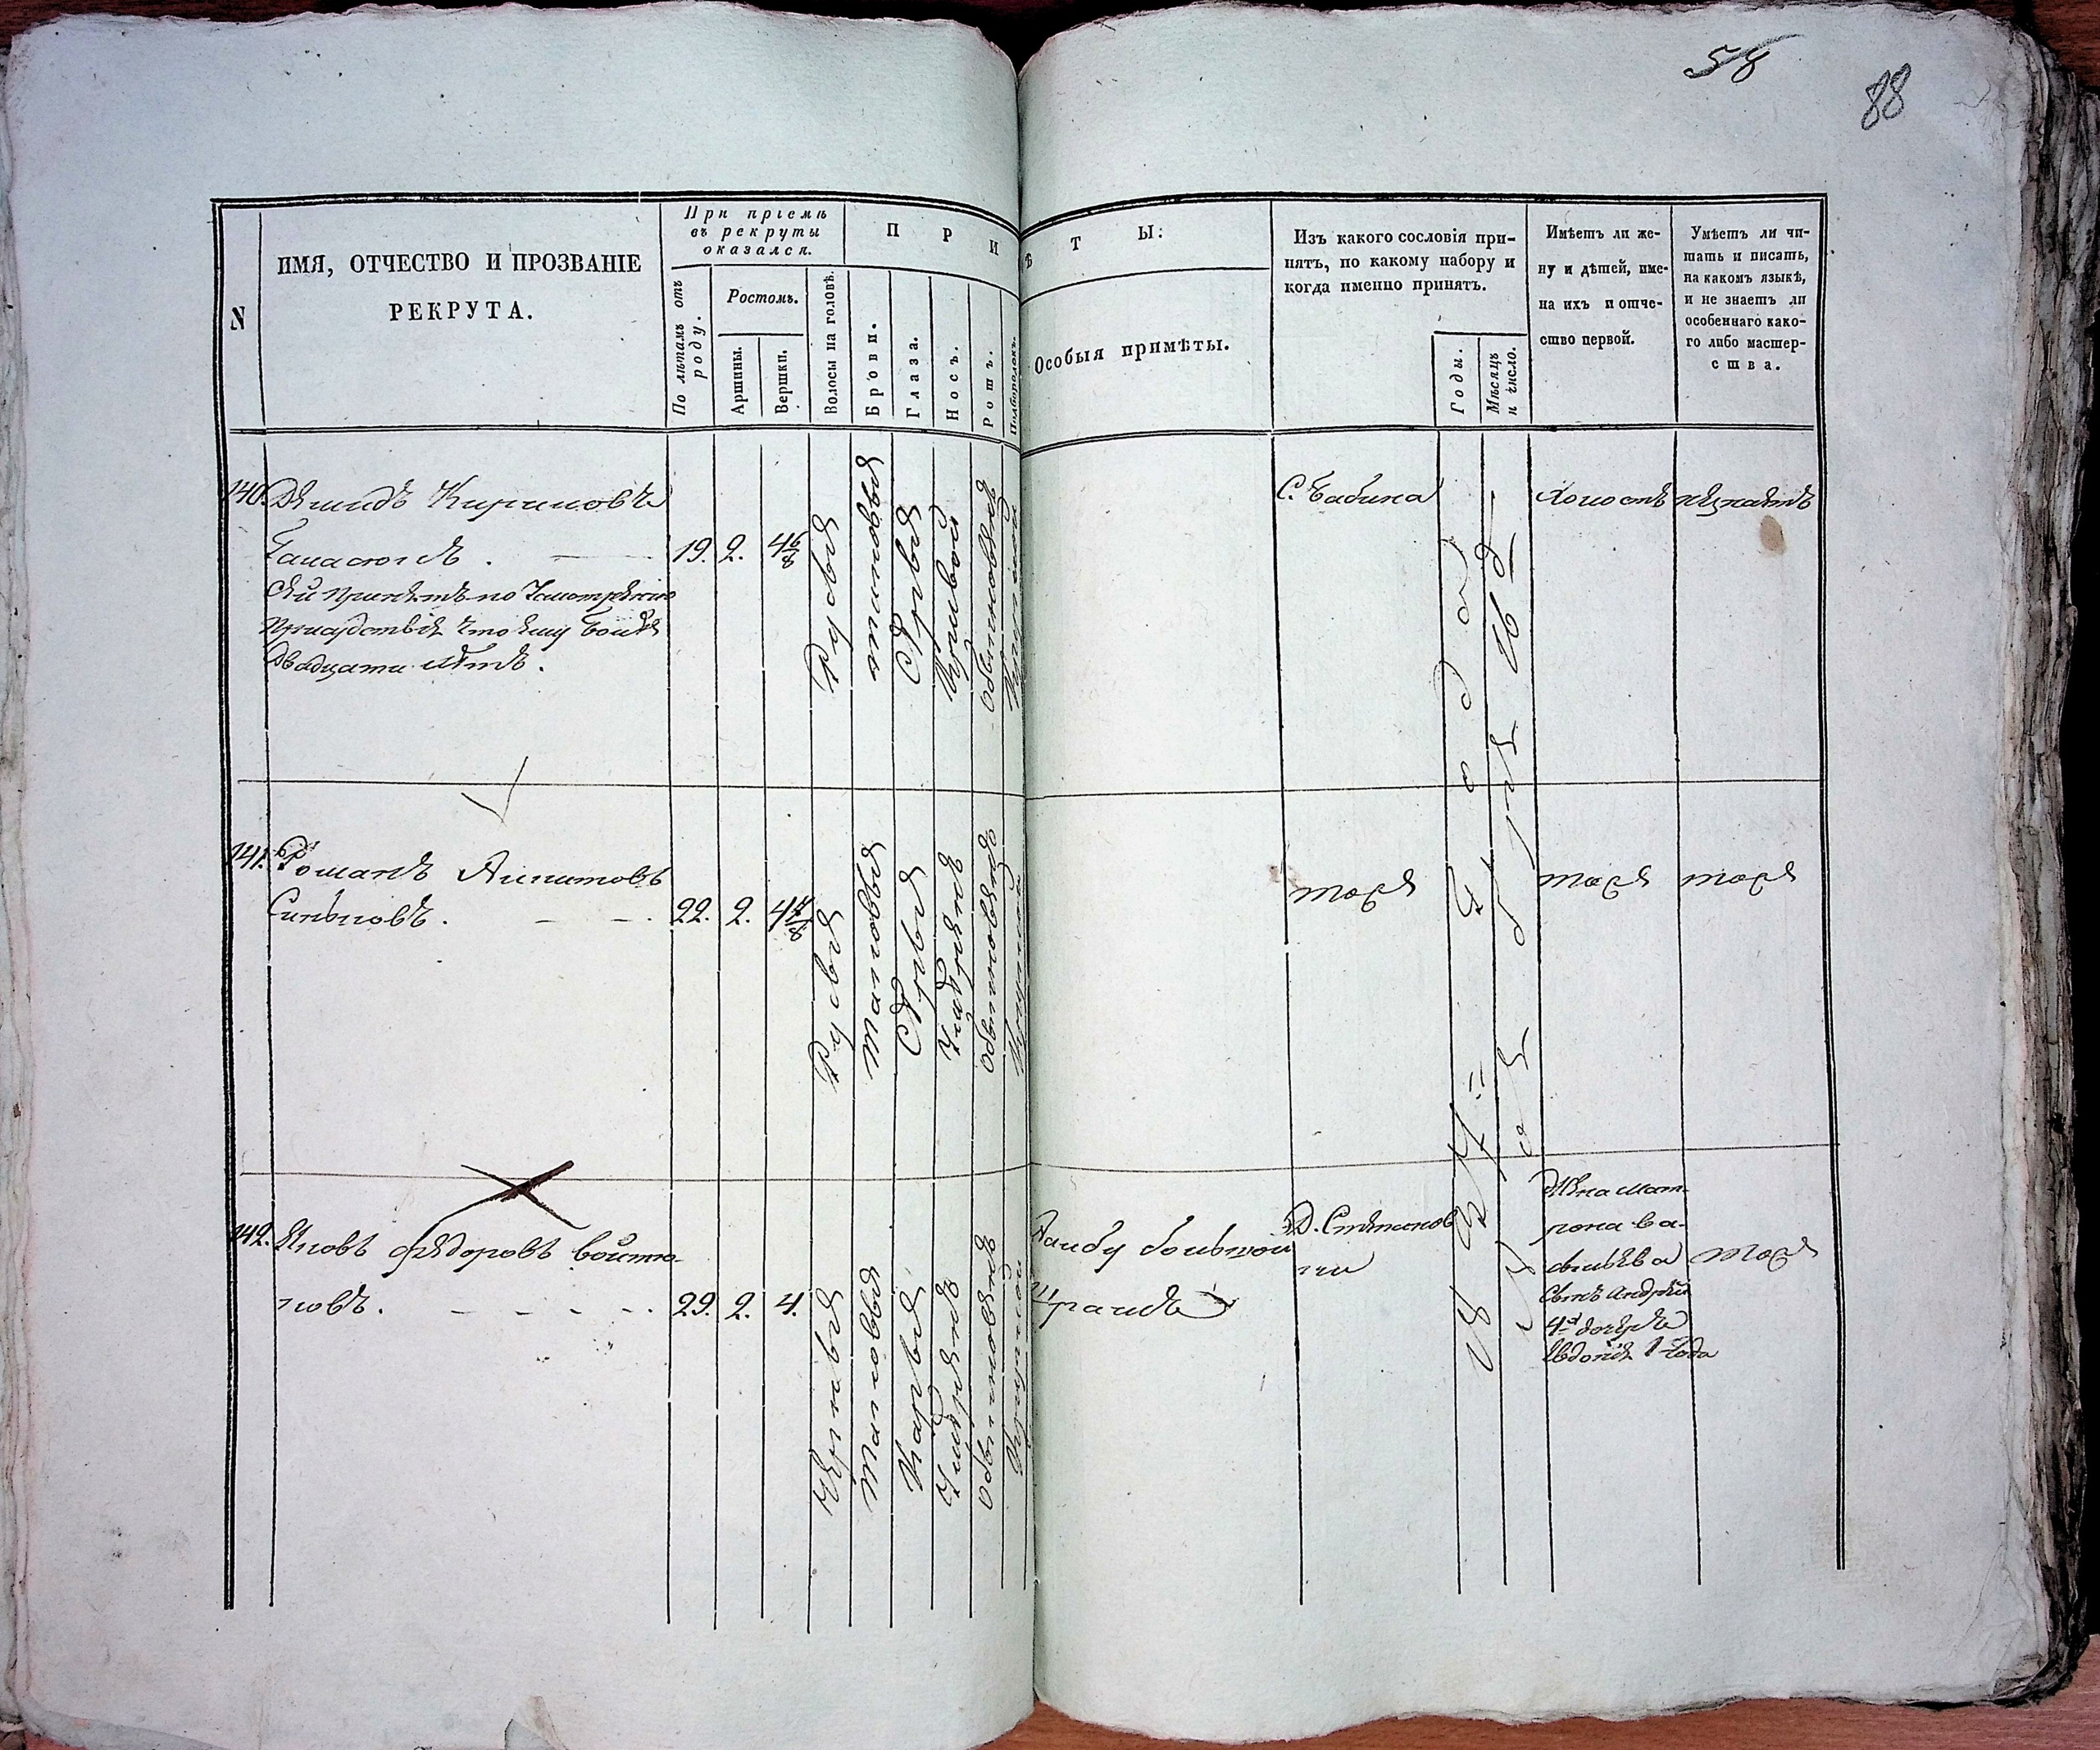 58
88
N
ИМЯ, ОТЧЕСТВО И ПРОЗВАНІЕ
РЕКРУТА.
При пріемѣ
въ рекруты
оказался.
По лѣтамъ отъ
роду.
Ростомъ.
Аршины.
Вершки.
П Р И М Ѣ Т Ы:
Волосы на головѣ.
Брови.
Глаза.
Носъ.
Ротъ.
Подбородокъ.
Особыя примѣты.
Изъ какого сословія при-
нятъ, по какому набору и
когда именно принятъ.
Годы.
Мѣсяцъ
и число.
Имѣетъ ли же-
ну и дѣтей, име-
на ихъ и отче-
ство первой.
Умѣетъ ли чи-
тать и писать,
на какомъ языкѣ,
и не знаетъ ли
особеннаго како-
го либо мастер-
ства.
140. Демидъ Кириловъ
19. 2. 4 6/8
Сей принятъ по усмотрению
присудствія что ему более
двадцати летъ.
Русыя
Серыя
обыкновеной
С. Бабина
холостъ
незнаетъ
141. Романъ Антиповъ
22. 2. 4 4/8
Русыя
таковыя
Серыя
умереной
обыкновеной
тоже
тоже
тоже
142. Яковъ Федоровъ
29. 2. 4.
таковыя
Карыя
умереной
обыкновеной
На лбу большой
шрамъ
Жена Мат-
рона Ва-
сильева
сынъ Андрей
дочеря
Евдокия 1 года
тоже